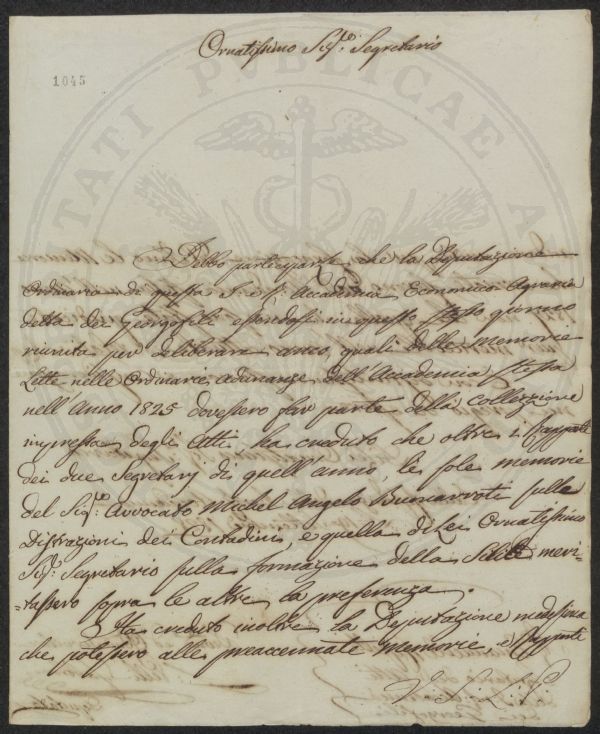 Ornatissimo Sig.re Segretario
1045
PUBLICAE
Debbo parteciparle che la Deputazione
Ordinaria di questa I. e R. Accademia Economico Agraria
detta dei Georgofili essendosi in questo stesso giorno
riunita per deliberare anco, quali delle memorie
Lette nelle Ordinarie adunanze dell'Accademia stessa
nell'Anno 1825 dovessero far parte della collezione
impressa degli Atti ha creduto che oltre i Rapporti
dei due Segretarj di quell'anno, le sole memorie
del Sig.re Avvocato Michel Angelo Buonarroti sulle
Disdizioni dei Contadini, e quella di Lei Ornatissimo
Sig.re Segretario sulla formazione della meri-
-tassero sopra le altre la preferenza.
Ha creduto inoltre la Deputazione medesima
che potessero alle preaccennate memorie, e Rapporti